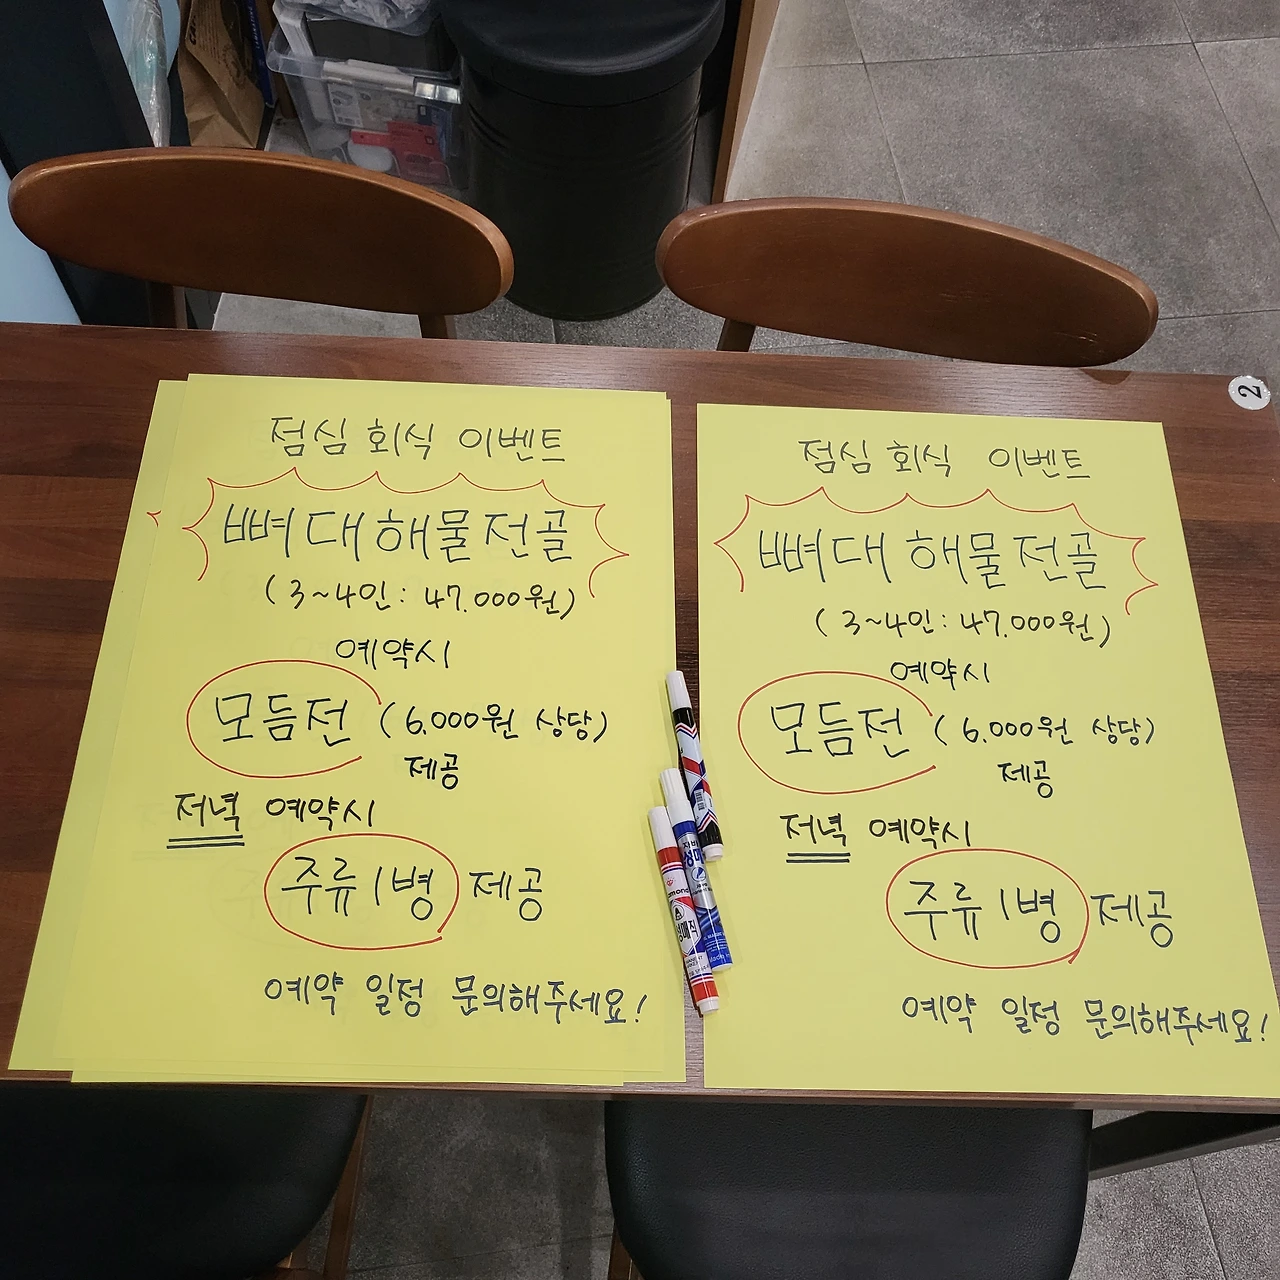 점심 회식 이벤트
뼈대해물전골
(3~4인: 47.000원)
예약시
모듬전 (6.000원 상당)
제공
저녁 예약시
주류1병 제공
예약 일정 문의해주세요!
점심 회식 이벤트
뼈대 해물전골
(3~4인: 47.000원)
예약시
모듬전 (6.000원 상당)
제공
저녁 예약시
주류1병 제공
예약 일정 문의해주세요!
2